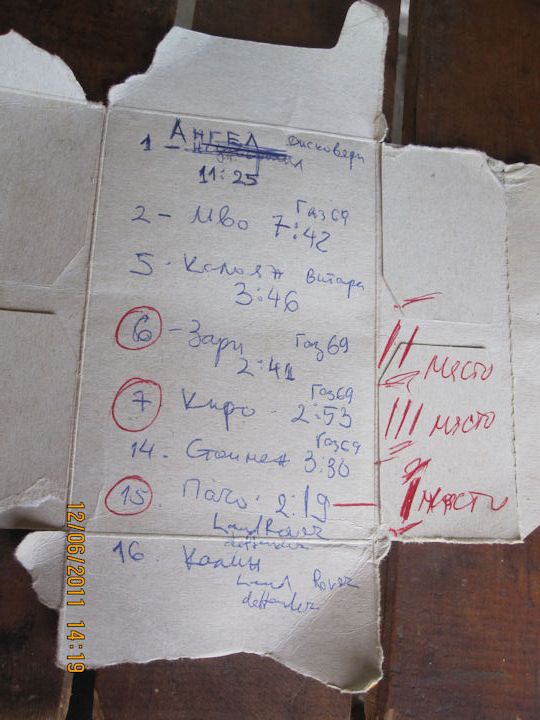 1 - Ангел Дисковери
11:25
2 - Иво Газ69
7:42
5. Калоян Витара
3:46
6 - Зари Газ69
2:41
II място
7 Киро. Газ69
2:53
III място
14. Стоимен Газ69
3:30
15 Пачо. 2:19
I място
Land Rover
16 Калмы
Land Rover
12/06/2011 14:19